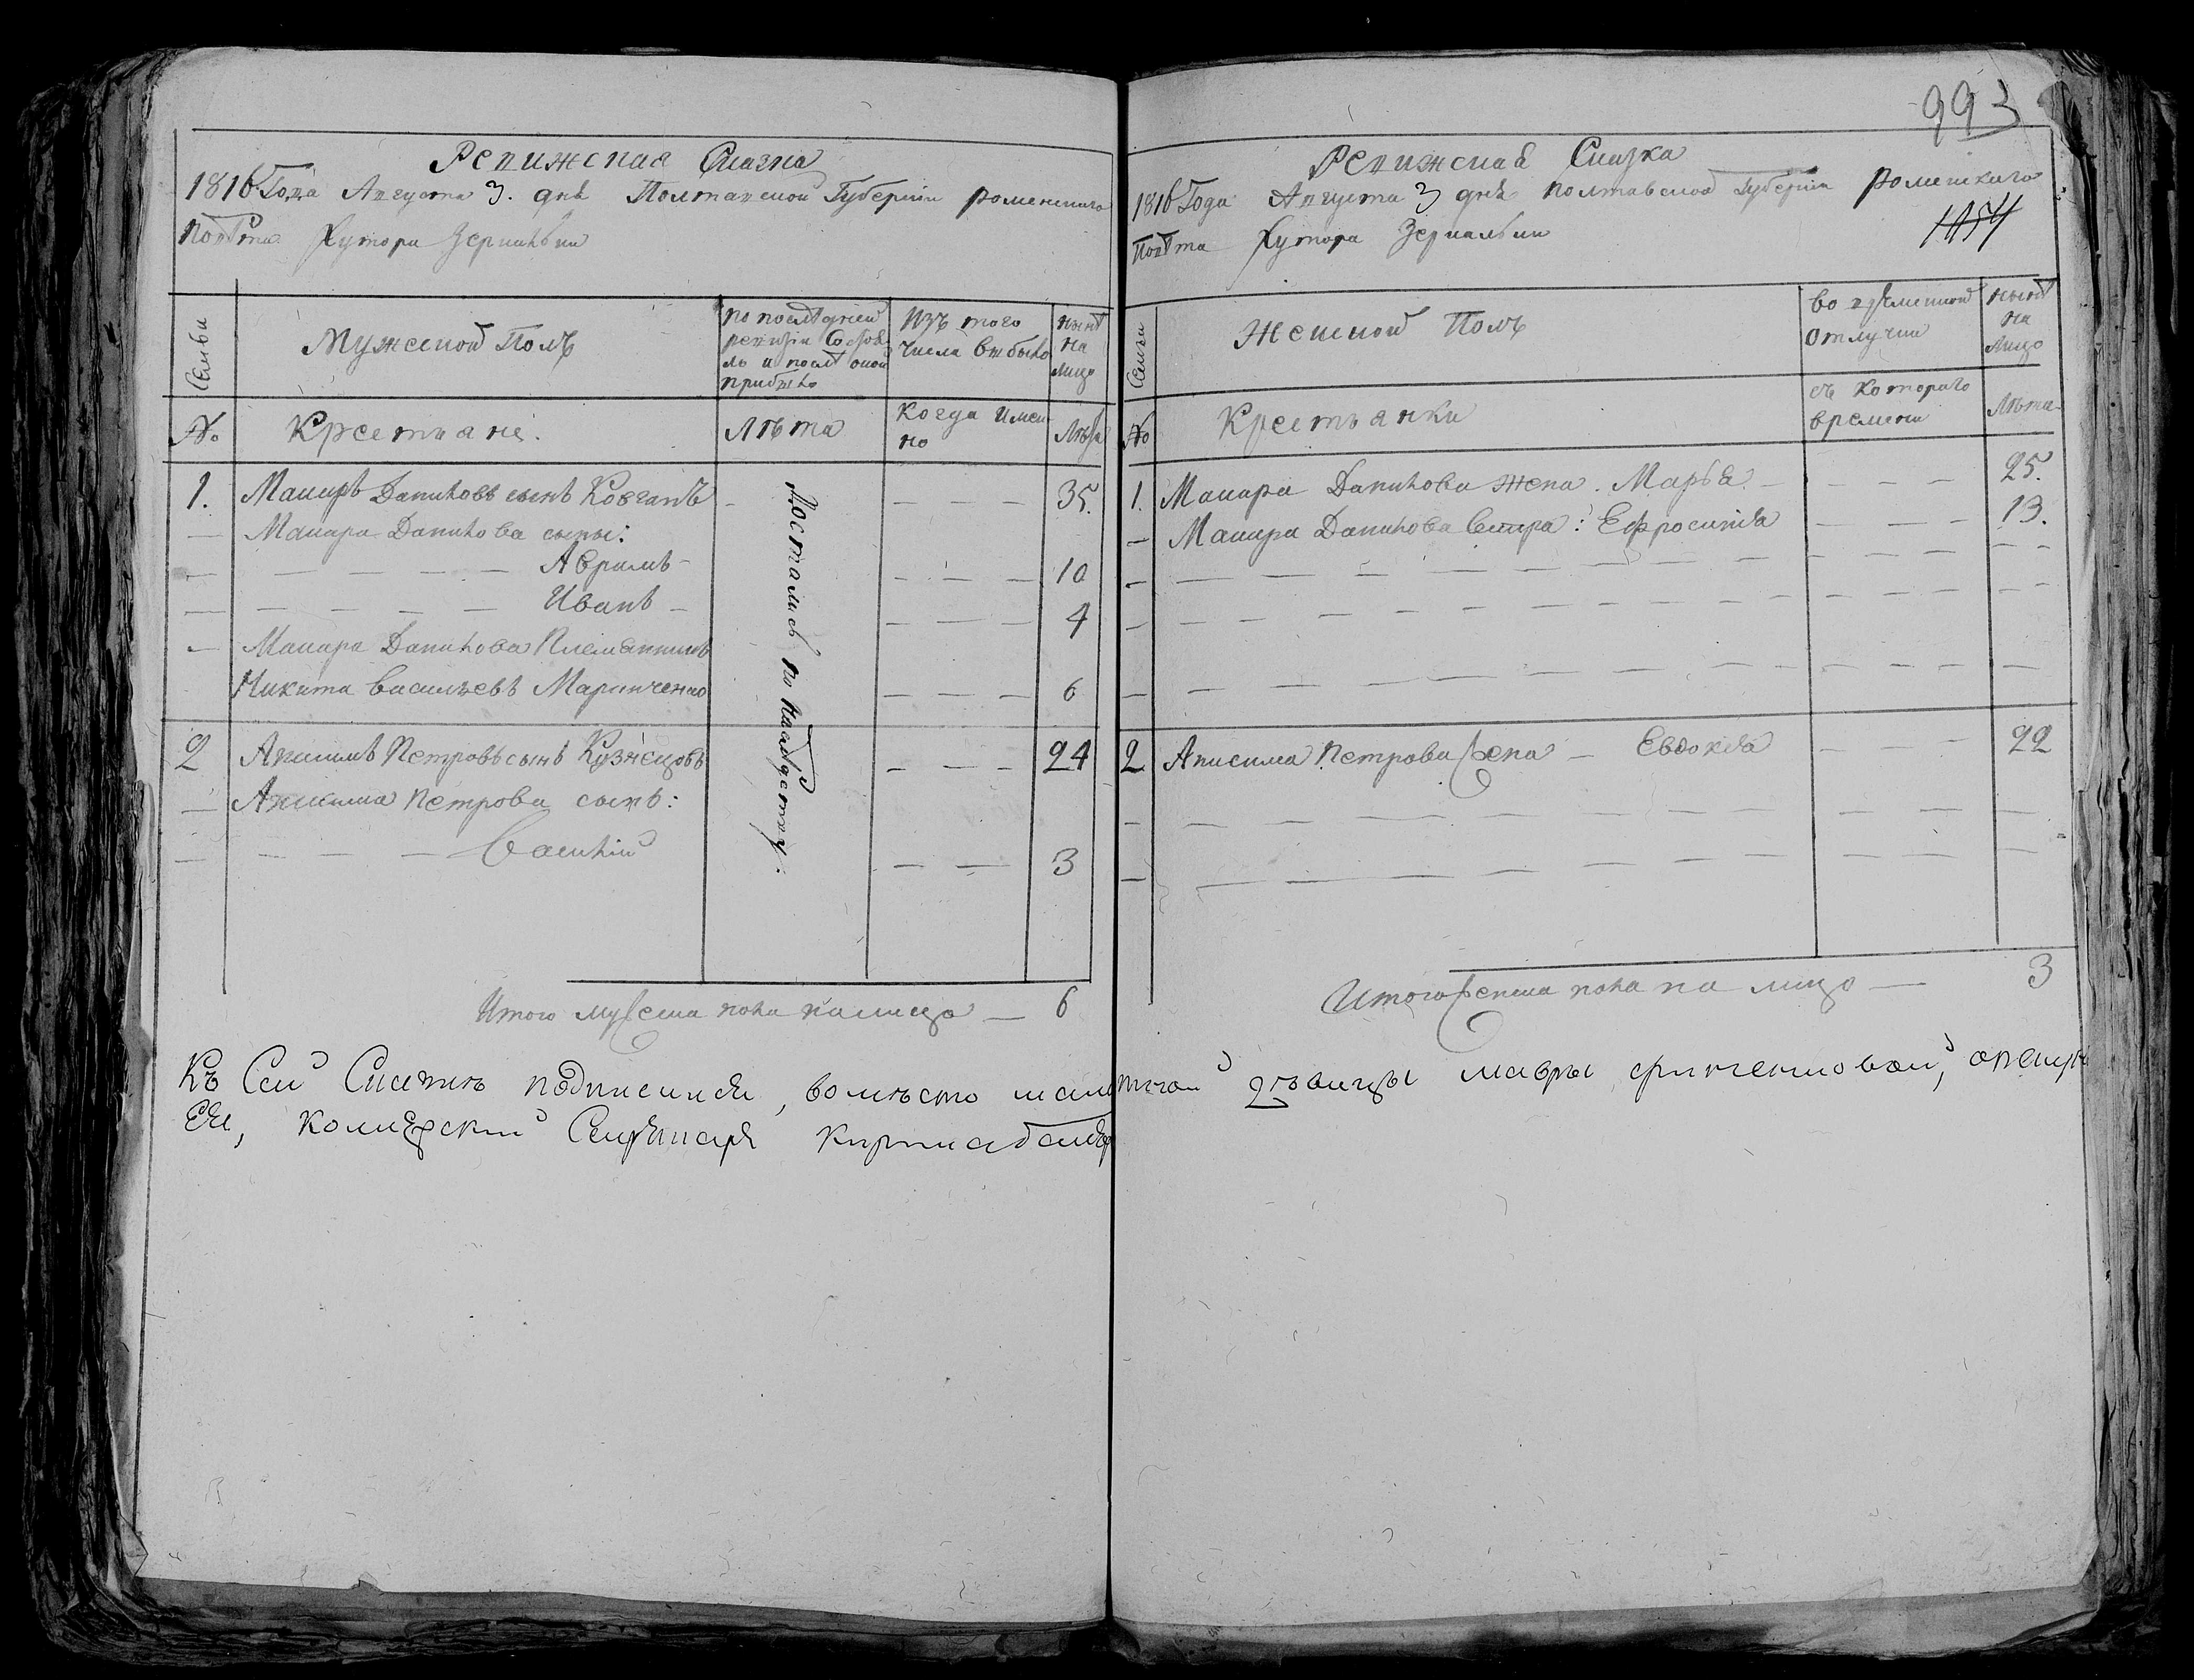 Ревижская Сказка
1816 Года Августа 3. дня Полтавской Губернии роменскаго
повѣта Хутора
Семьи
Мужеской Полъ
по последней ревизіи состоя
ло и послѣ оной прибыло
Изъ того числа выбыло
нынѣ на лицо
№
Крестьяне.
лѣта
когда имен
но
Лѣта
1. Макаръ Даниловъ сынъ Ковганъ – – – – 35.
– Макара Данилова сыны:
– – – – – Аврамъ – – – – 10
– – – – – – Иванъ – – – – 4
– Макара Данилова Племянникъ
Никита васильевъ Маринченко – – – 6
2 Анисимъ Петровъ сынъ Кузнецовъ – – – 24
– Анисима Петрова сынъ:
– – – – – Василій – – 3
Достались по наслѣдству.
Итого мужеска пола налицо — 6
993
Ревижская Сказка
1816 Года Августа 3 дня полтавской губерніи роменскаго
повѣта Хутора
1054
Семьи
Женской Полъ
во временной
отлучки
нынѣ
на
лицо
№
Крестьянки
съ котораго
времени
Лѣта
1. Макара Данилова жена. Марья – – – – 25.
– Макара Данилова сестра: Ефросинія – – – 13.
2 Анисима Петрова жена – Евдокія – – – 22
Итого женска пола на лицо — 3
Къ Сей Сказки подписался, вомѣсто дѣвицы мавры
Ея, Секретарь